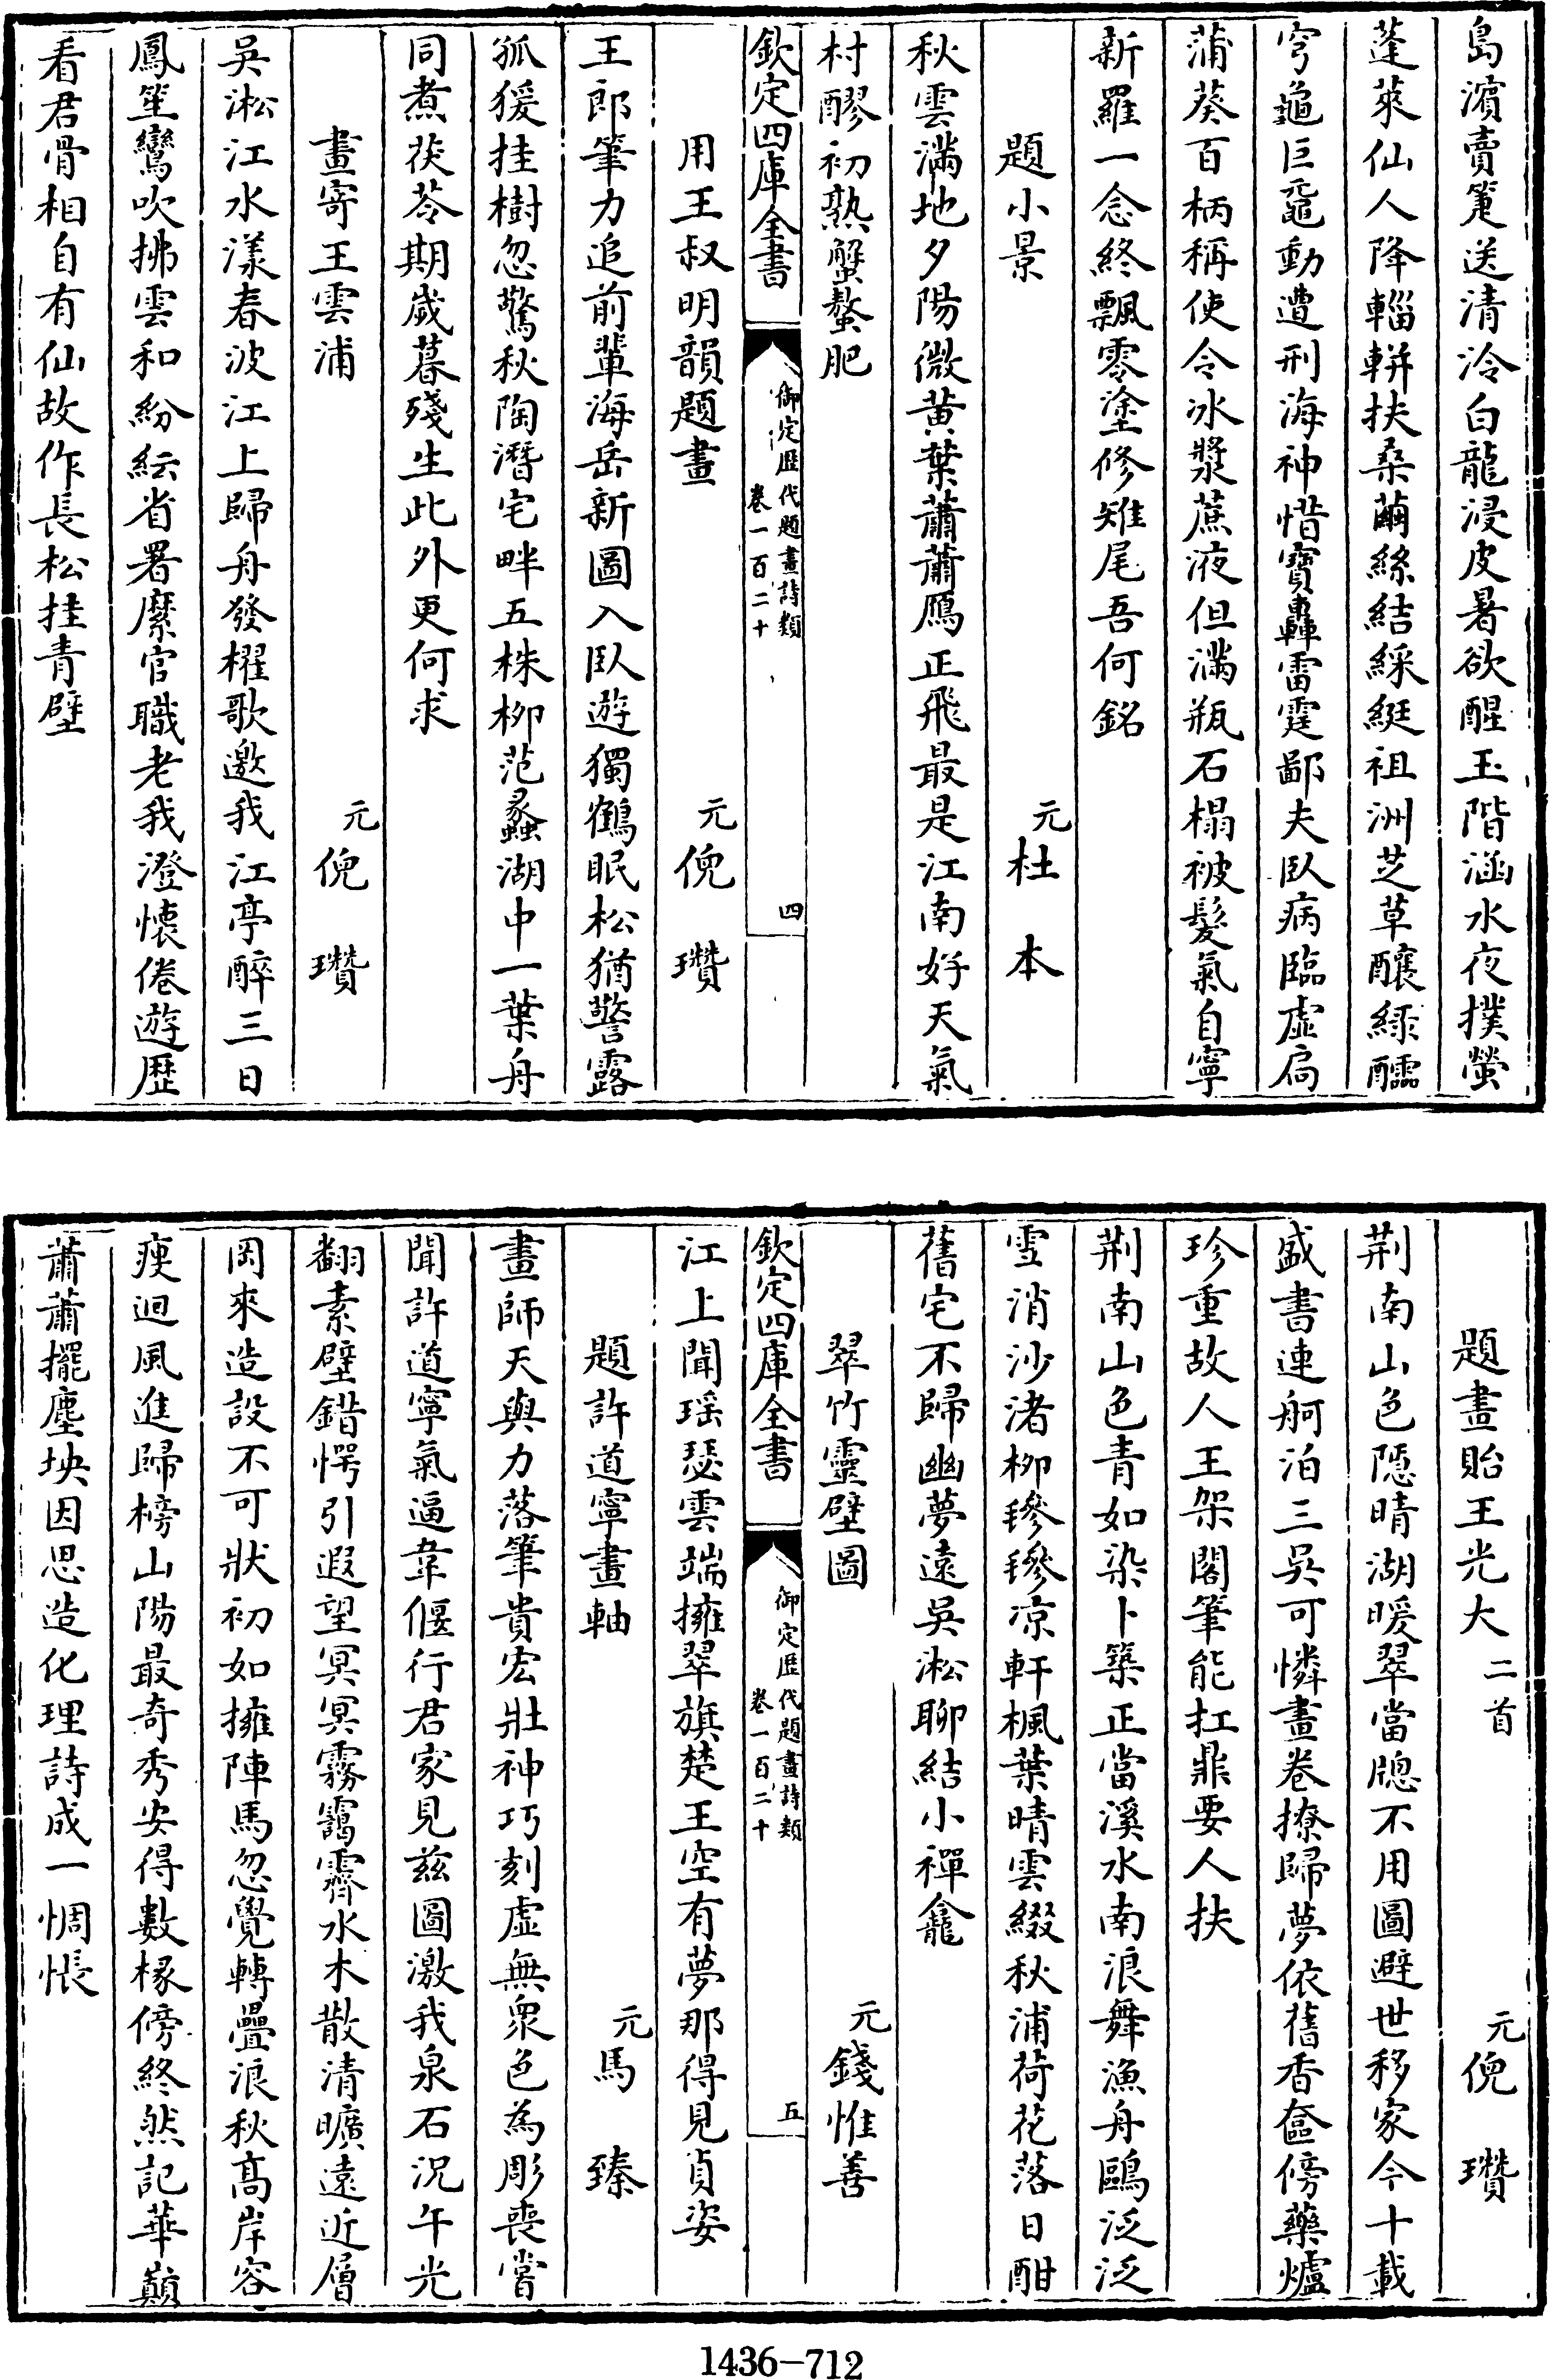 島濵賣箑送清泠白龍浸皮暑欲醒玉階涵水夜撲螢
蓬萊仙人降輜軿扶桑繭絲結綵綎祖洲芝草釀綠醽
穹龜巨黿動遭刑海神惜寶轟雷霆鄙夫臥病臨虛扃
蒲葵百柄稱使令冰漿蔗液但滿瓶石榻被髮氣自寧
新羅一念終飄零塗修雉尾吾何銘
題小景 元杜本
秋雲滿地夕陽微黃葉蕭蕭鴈正飛最是江南好天氣
村醪初熟蟹螯肥
欽定四庫全書 御定歷代題畫詩類 卷一百二十 四
用王叔明韻題畫 元倪瓚
王郎筆力追前輩海岳新圖入臥遊獨鶴眠松猶警露
孤猨挂樹忽驚秋陶潛宅畔五株柳范蠡湖中一葉舟
同煮茯苓期歲暮殘生此外更何求
畫寄王雲浦 元倪瓚
吳淞江水漾春波江上歸舟發櫂歌邀我江亭醉三日
鳳笙鸞吹拂雲和紛紜省署縻官職老我澄懷倦遊歷
看君骨相自有仙故作長松挂青壁
題畫貽王光大二首 元倪瓚
荆南山色隱晴湖暖翠當牕不用圖避世移家今十載
盛書連舸泊三吳可憐畫卷撩歸夢依舊香奩傍藥爐
珍重故人王架閣筆能扛鼎要人扶
荆南山色青如染卜築正當溪水南浪舞漁舟鷗泛泛
雪消沙渚柳毿毿凉軒楓葉晴雲綴秋浦荷花落日酣
舊宅不歸幽夢遠吳淞聊結小禪龕
翠竹靈壁圖 元錢惟善
欽定四庫全書 御定歷代題畫詩類 卷一百二十 五
江上聞瑶瑟雲端擁翠旗楚王空有夢那得見貞姿
題許道寧畫軸 元馬臻
畫師天與力落筆貴宏壯神巧刻虛無衆色為彫喪嘗
聞許道寧氣逼韋偃行君家見兹圖激我泉石況午光
翻素壁錯愕引遐望冥冥霧靄霽水木散清曠遠近層
岡來造設不可狀初如擁陣馬忽覺轉疊浪秋髙岸容
瘦迴風進歸榜山陽最奇秀安得數椽傍終然記華巔
蕭蕭擺塵坱因思造化理詩成一惆悵
1436-712